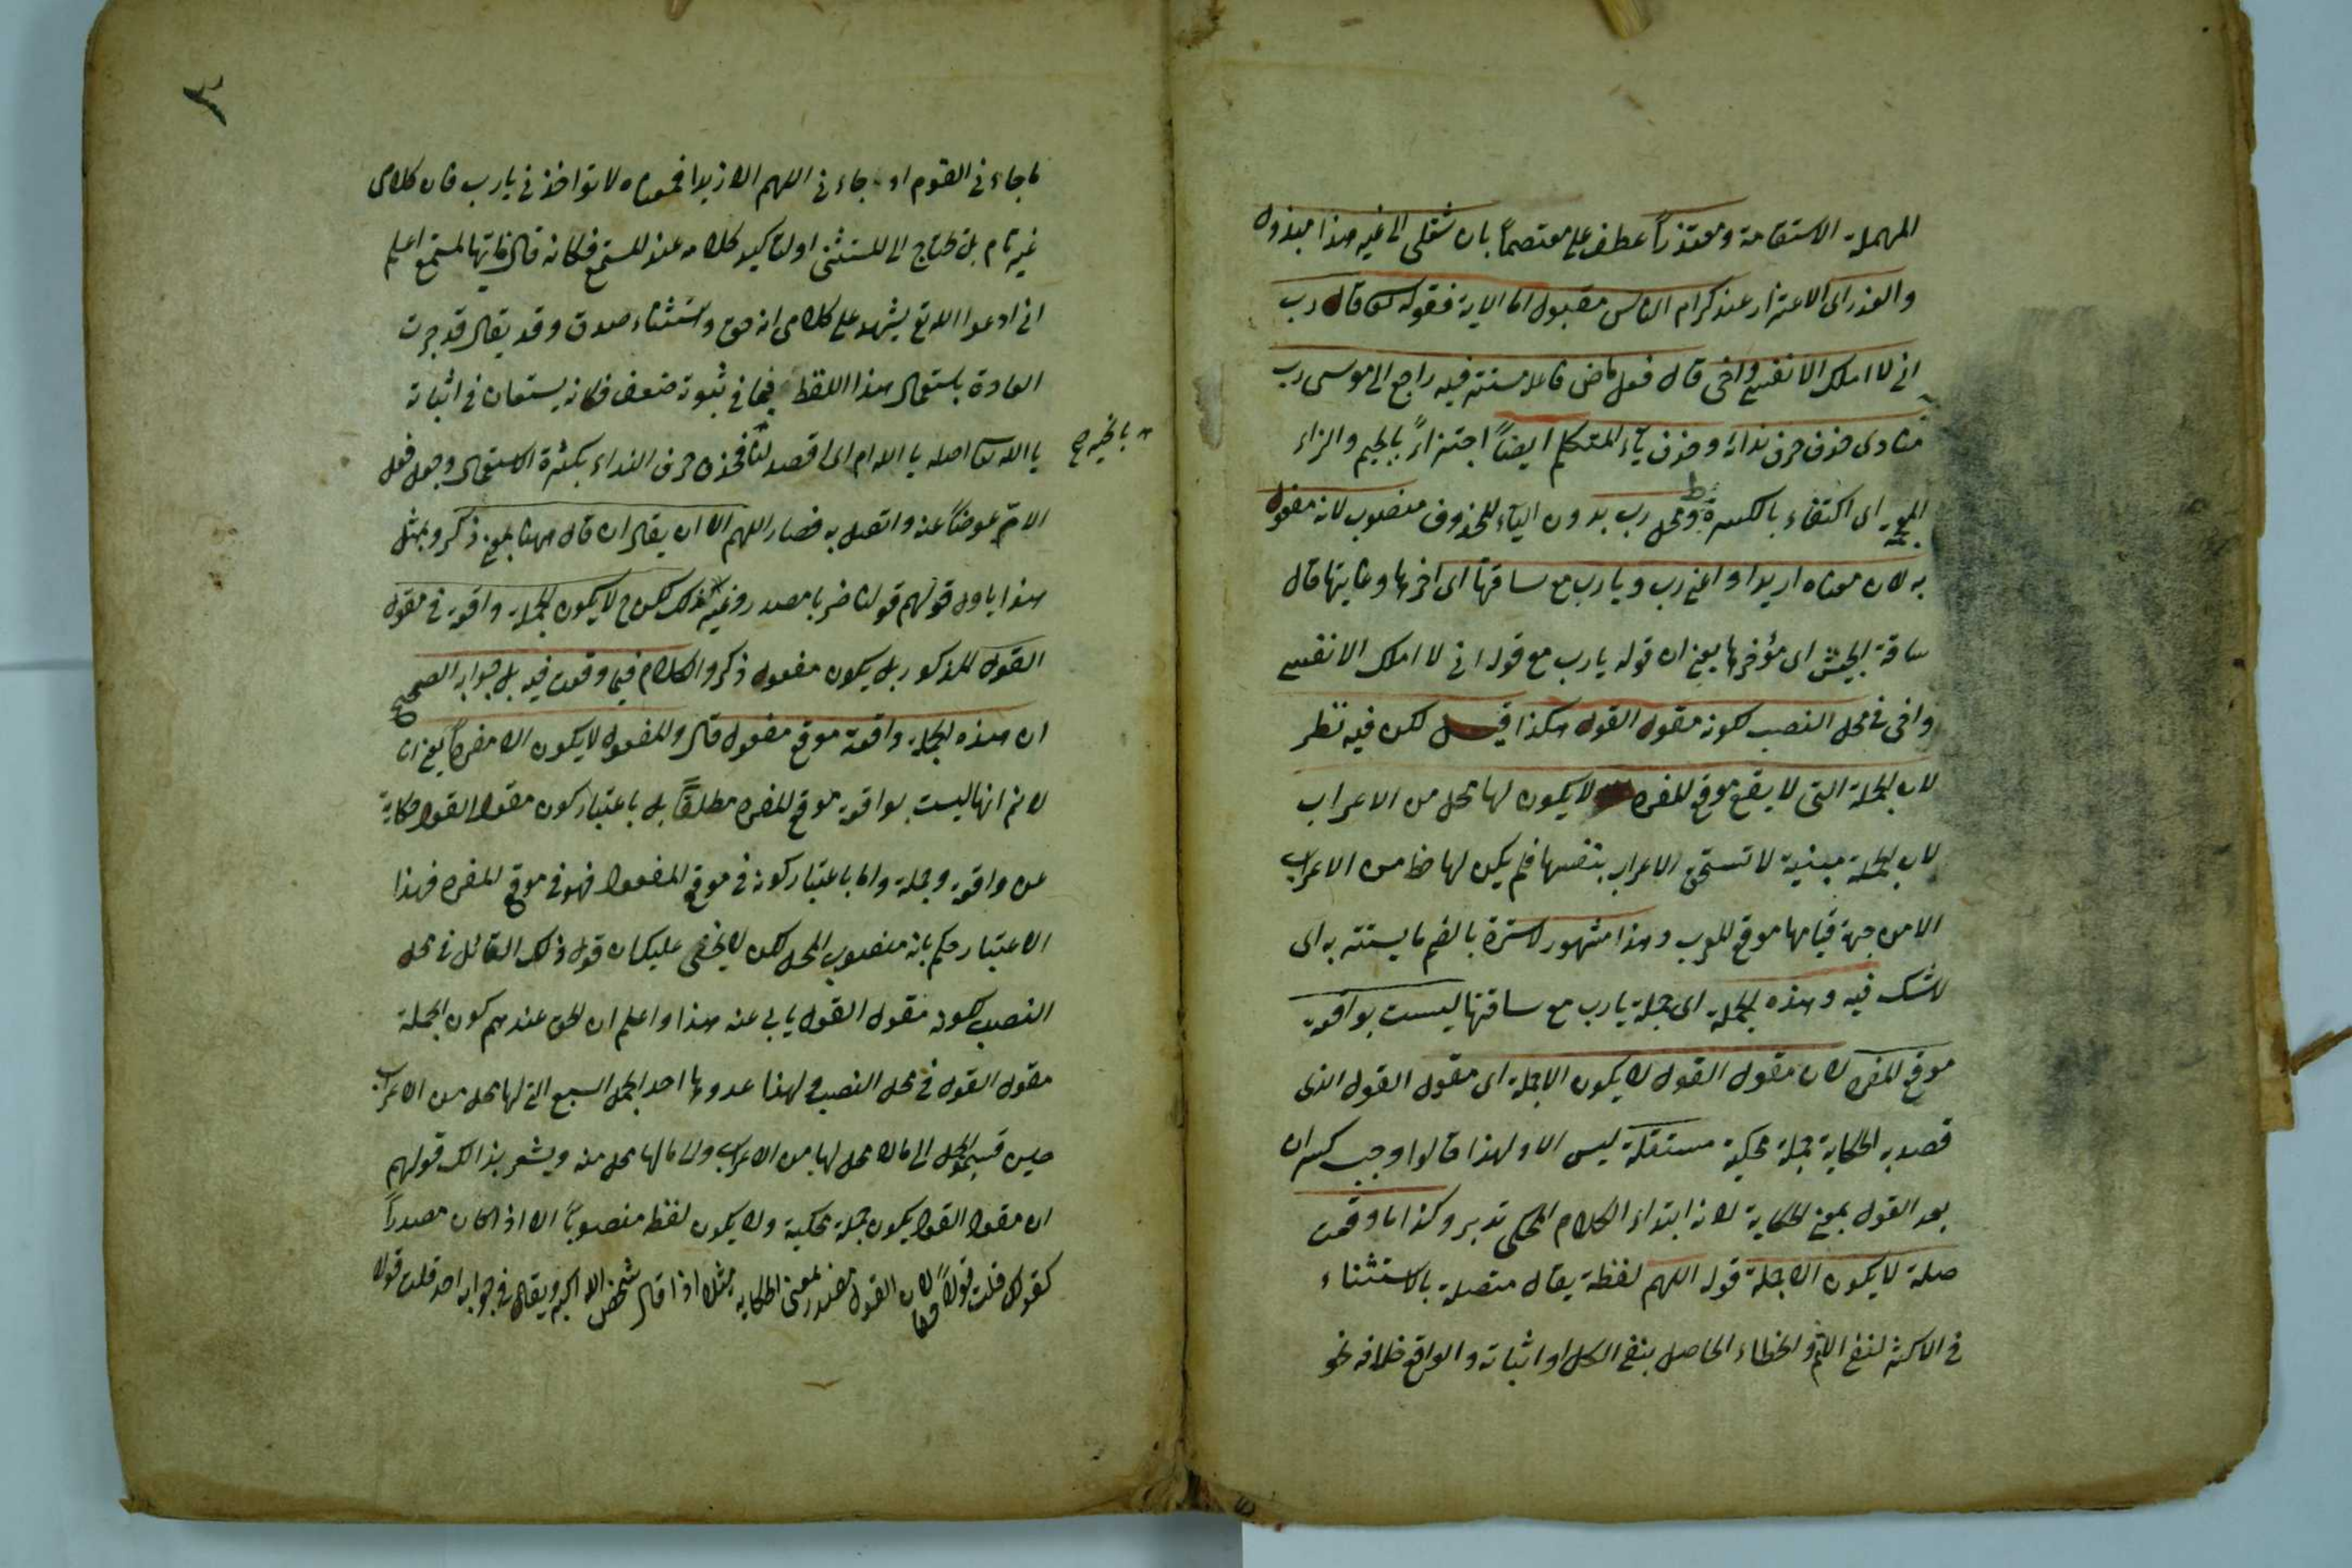 المهملة الاستقامة ومعتذراً عطف على معتصماً بان شغلى الى غيره هذا مبذول
والعذر اى الاعتذار عند كرام الناس مقبول اما الاية فقوله تعالى قال رب
انى لا املك الا نفسى واخى قال فعل ماض فاعله مستتر فيه راجع الى موسى رب
منادى حذف حرف ندائه وحذف ياء المتكلم ايضاً اجتزاءً بالجيم والزاء
المعجمة اى اكتفاء بالكسرة ومحل رب بدون الياء المحذوف منصوب لانه مفعول
به لان معناه اريد او اعنى رب ويا رب مع ساقتها اى اخرها وغايتها قال
ساقة الجيش اى مؤخرها يعنى ان قوله يا رب مع قوله انى لا املك الا نفسى
واخى فى محل النصب لكونه مقول القول هكذا قيل لكن فيه نظر
لان الجملة التى لا يقع موقع المفرد لا يكون لها محل من الاعراب
لان الجملة مبنية لا تستحق الاعراب بنفسها فلم يكن لها حظ من الاعراب
الا من جهة قيامها موقع المعرب وهذا مشهور لا سترة بالضم ما يستتر به اى
لا شك فيه وهذه الجملة اى جملة يا رب مع ساقتها ليست بواقعة
موقع المفرد لان مقول القول لا يكون الا جملة اى مقول القول الذى
قصد به الحكاية جملة محكية مستقلة ليس الا ولهذا قالوا وجب كسر ان
بعد القول بمعنى الحكاية لانه ابتداء الكلام المحكى تدبر وكذا ما وقعت
صلة لا يكون الا جملة قوله اللهم لفظة يقال متصلة بالاستثناء
فى الاكثر لنفى والخطاء الحاصل بنفى الكل او اثباته والواقع خلافه نحو
ما جاءنى القوم او جاءنى اللهم الا زيدا فمعناه لا تواخذنى يا رب فان كلامى
غير تام بل محتاج الى المستثنى او لتاكيد كلامه عند المستمع فكانه قال ايها المستمع اعلم
انى ادعوا الله تع يشهد على كلامى انه حق واستثناء صدق وقد يقال قد جرت
العادة باستعمال هذا اللفظ فيما فى ثبوته ضعف فكانه يستعان فى اثباته
يا الله تعالى اصله يا الله ام اى اقصد لنا فحذف حرف النداء بكثرة الاستعمال وجعل فعل
بالخير صح
الام عوضاً عنه واتصل به فصار اللهم الا ان يقال ان قال ههنا بمعنى ذكر وبمثل
هذا ياول قولهم قولنا ضربا مصدر وغير ذلك لكن ح لا يكون الجملة واقعة فى مقول
القول المذكور بل يكون مفعول ذكر والكلام فيما وقعت فيه بل جوابه الصحيح
ان هذه الجملة واقعة موقع مفعول قال والمفعول لا يكون الا مفردا يعنى انا
لا نم انها ليست بواقعة موقع المفرد مطلقاً بل باعتبار كون مقول القول حكاية
عن واقعة وجملة واما باعتبار كونه فى موقع المفعول فهو فى موقع المفرد فهذا
الاعتبار حكم بانه منصوب المحل لكن لا يخفى عليك ان قول ذلك القائل فى محل
النصب لكونه مقول القول يابى عنه هذا واعلم ان الحق عندهم كون الجملة
مقول القول فى محل النصب ولهذا عدوها احد الجمل السبع التى لها محل من الاعراب
حين قسموا الجمل الى ما لا محل لها من الاعراب والى ما لها محل منه ويشعر بذالك قولهم
ان مقول القول يكون جملة محكية ولا يكون لفظ منصوباً الا اذا كان مصدراً
كقولك قلت قولاً لان القول مصدر بمعنى الحكاية مثلا اذا قال شخص الله اكبر ويقال فى جوابه احد قلت قولا